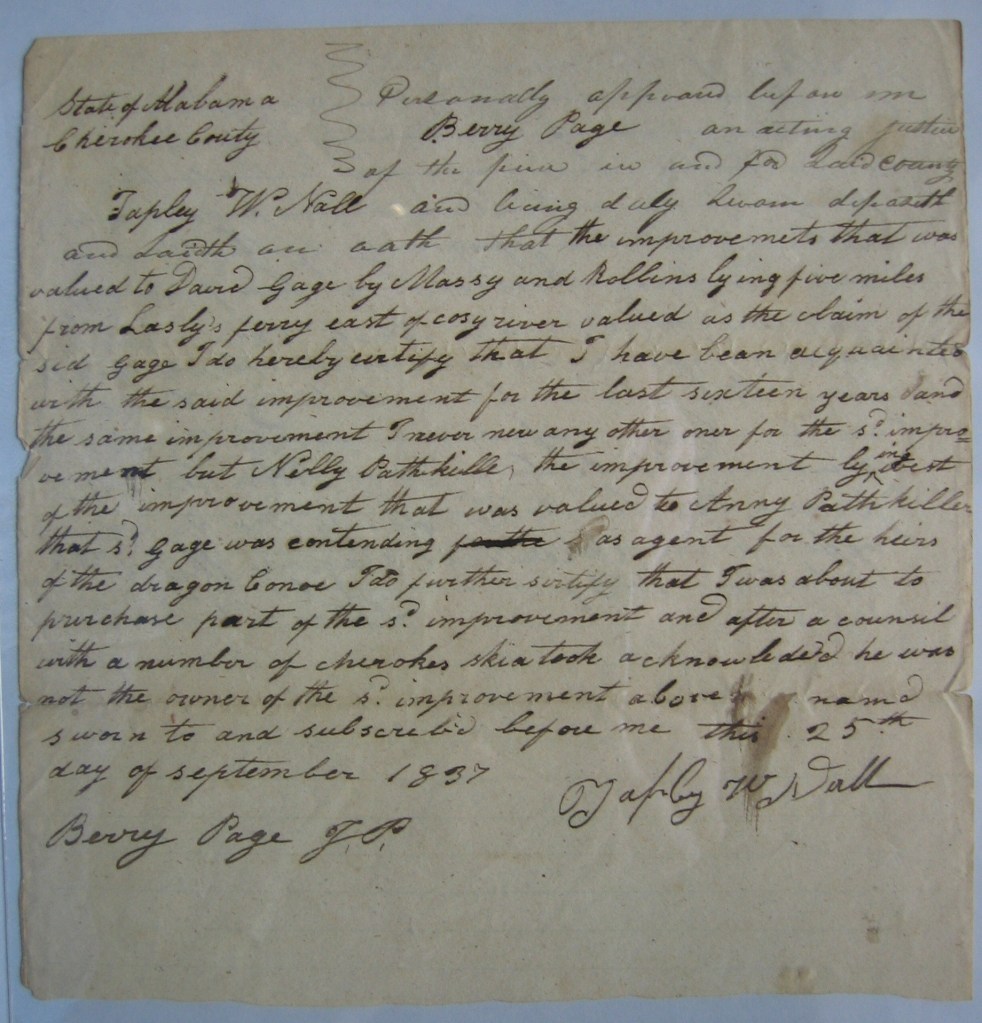 State of Alabama
Cherokee Couty
Personally appeard before me
Berry Page an acting Justice
of the peace in and for said county
Tapley W. Nall and being duly sworn deposeth
and saidth on oath that the improvemets that was
valued to David Gage by Massy and Rollins lying five miles
from Lasly's ferry east of cosy river valued as the claim of the
sid Gage I do hereby certify that I have bean acquainted
with the said improvement for the last sixteen years and
the same improvement I never new any other oner for the sd. impro=
vement but Nelly Pathkille, the improvement lying west
of the improvement that was valued to Anny Pathkiller
that sd. Gage was contending as agent for the heirs
of the dragon Conoe I do further sirtify that I was about to
purchase part of the sd. improvement and after a counsil
with a number of cherokes skiatook acknowlededd he was
not the owner of the sd. improvement above namd
sworn to and subscribd before me this 25th
day of september 1837
Tapley W Nall
Berry Page J.P.